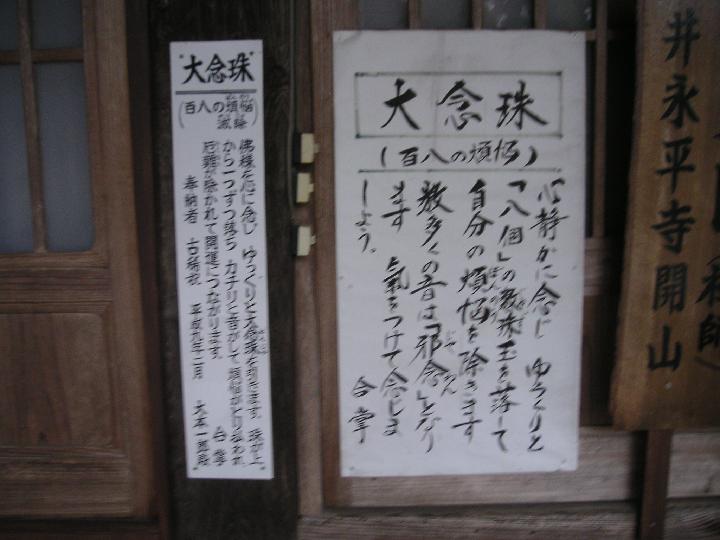 大念珠
(百八の煩悩)
心静かに念じ ゆっくりと
「八個」の数珠玉を落して
自分の煩悩を除きます
数多くの音は「邪念」となり
ます 氣をつけて念じま
しょう。
合掌
大念珠
(百八の煩悩
滅除)
佛様を心に念じ ゆっくりと大念珠を引きます。珠が上
から一つずつ落ち カチリと音がして 煩悩がとり払われ
厄難が除かれて開運につながります。
合掌
奉納者 古稀祝 平成九年二月 大本一
井永平寺開山